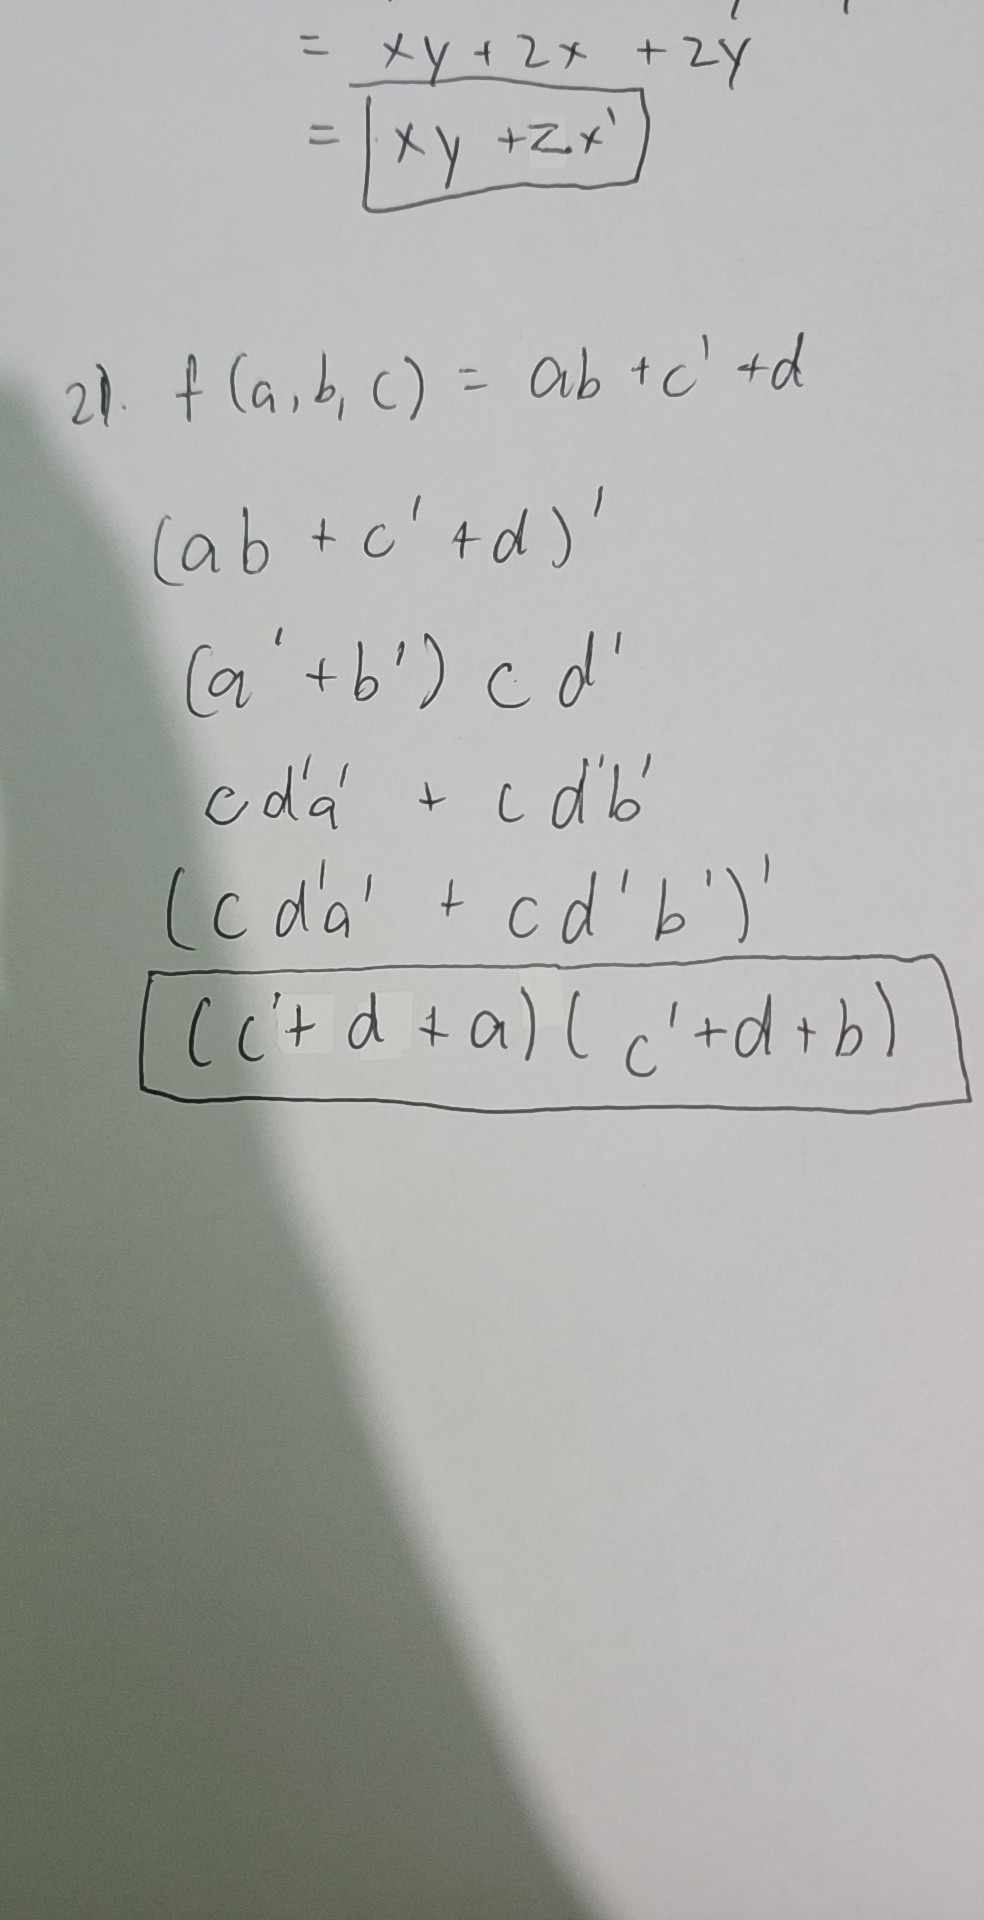 = xy + zx + zy
= xy + zx'
2). f (a, b, c) = ab + c' + d
(ab + c' + d)'
(a' + b') c d'
c d'a' + c d'b'
(c d'a' + c d'b')'
(c' + d + a) ( c' + d + b)